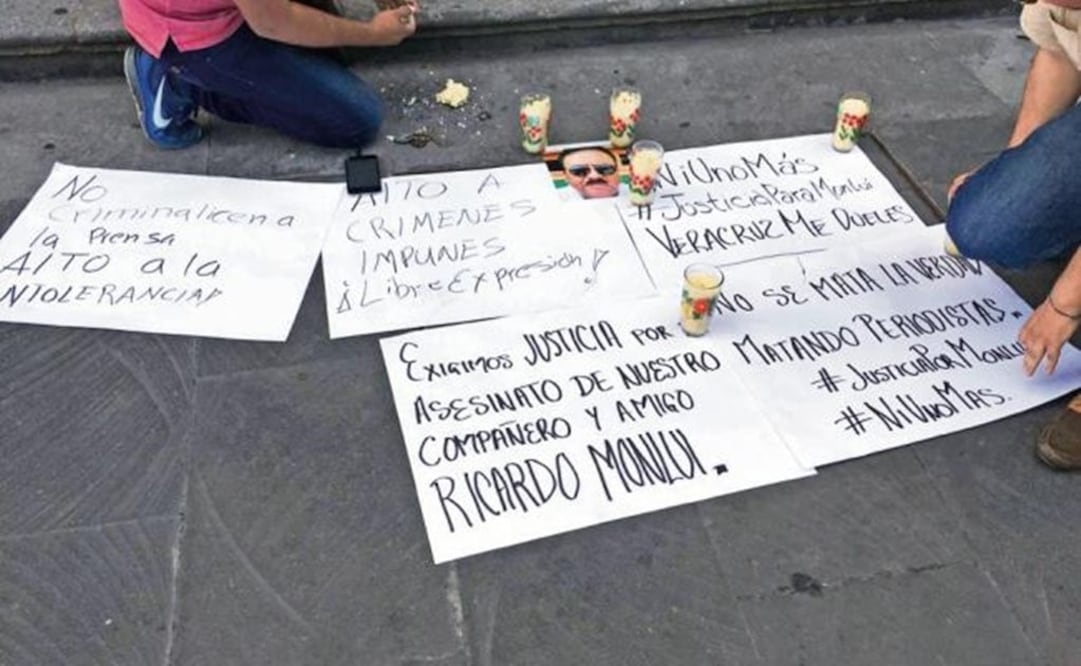 No
Criminalicen a
la Prensa
ALTO a la
INTOLERANCIA!
ALTO A
CRIMENES
IMPUNES
¡Libre Expresión!
NiUnoMás
#JusticiaParaMonlui
VERACRUZ ME DUELES
EXIGIMOS JUSTICIA POR
ASESINATO DE NUESTRO
COMPAÑERO Y AMIGO
RICARDO MONLUI.
NO SE MATA LA VERDAD
MATANDO PERIODISTAS.
#JUSTICIAPORMONLUI
#NIUNOMAS.